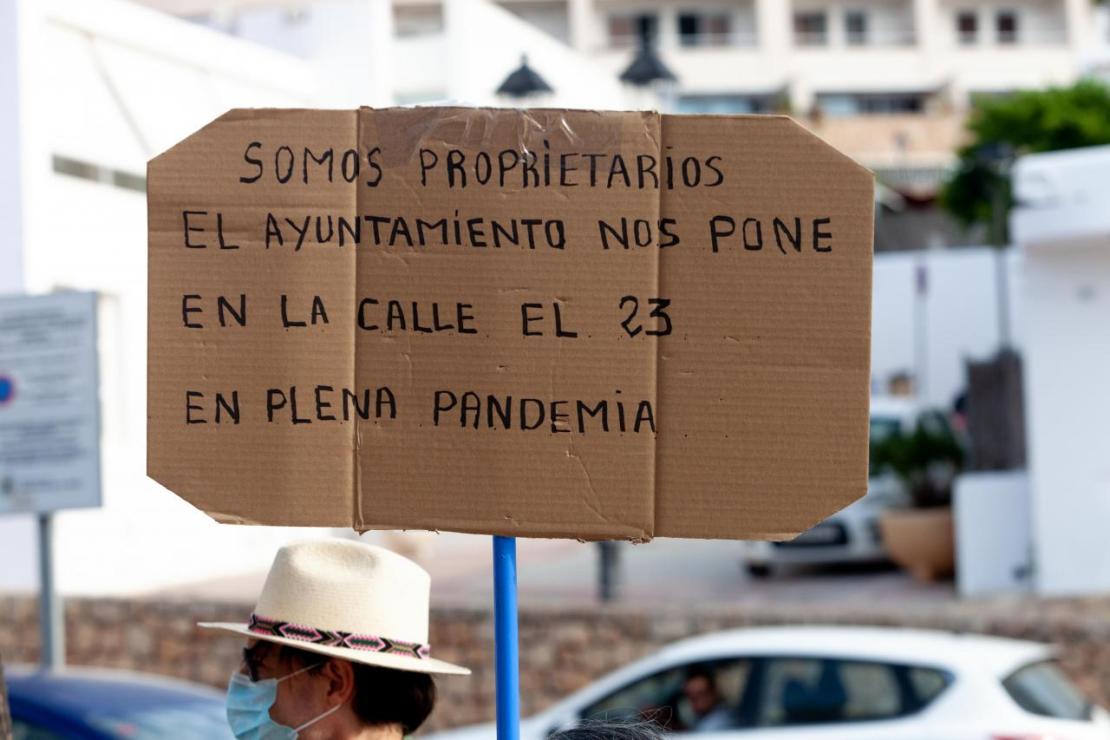 SOMOS PROPRIETARIOS
EL AYUNTAMIENTO NOS PONE
EN LA CALLE EL 23
EN PLENA PANDEMIA